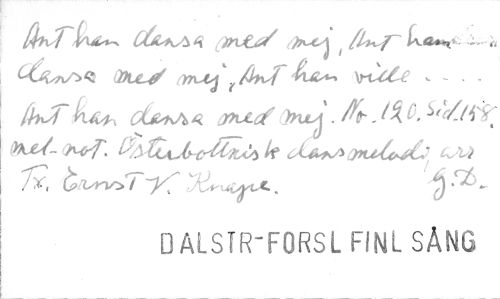 Ant han dansa med mej, Ant han
dansa med mej, Ant han ville ....
Ant han dansa med mej. No. 190. Sid. 158.
mel-not. Österbottnisk dansmelodi, arr
Tx. Ernst V. Knape. G.D.
DALSTR-FORSL FINL SÅNG